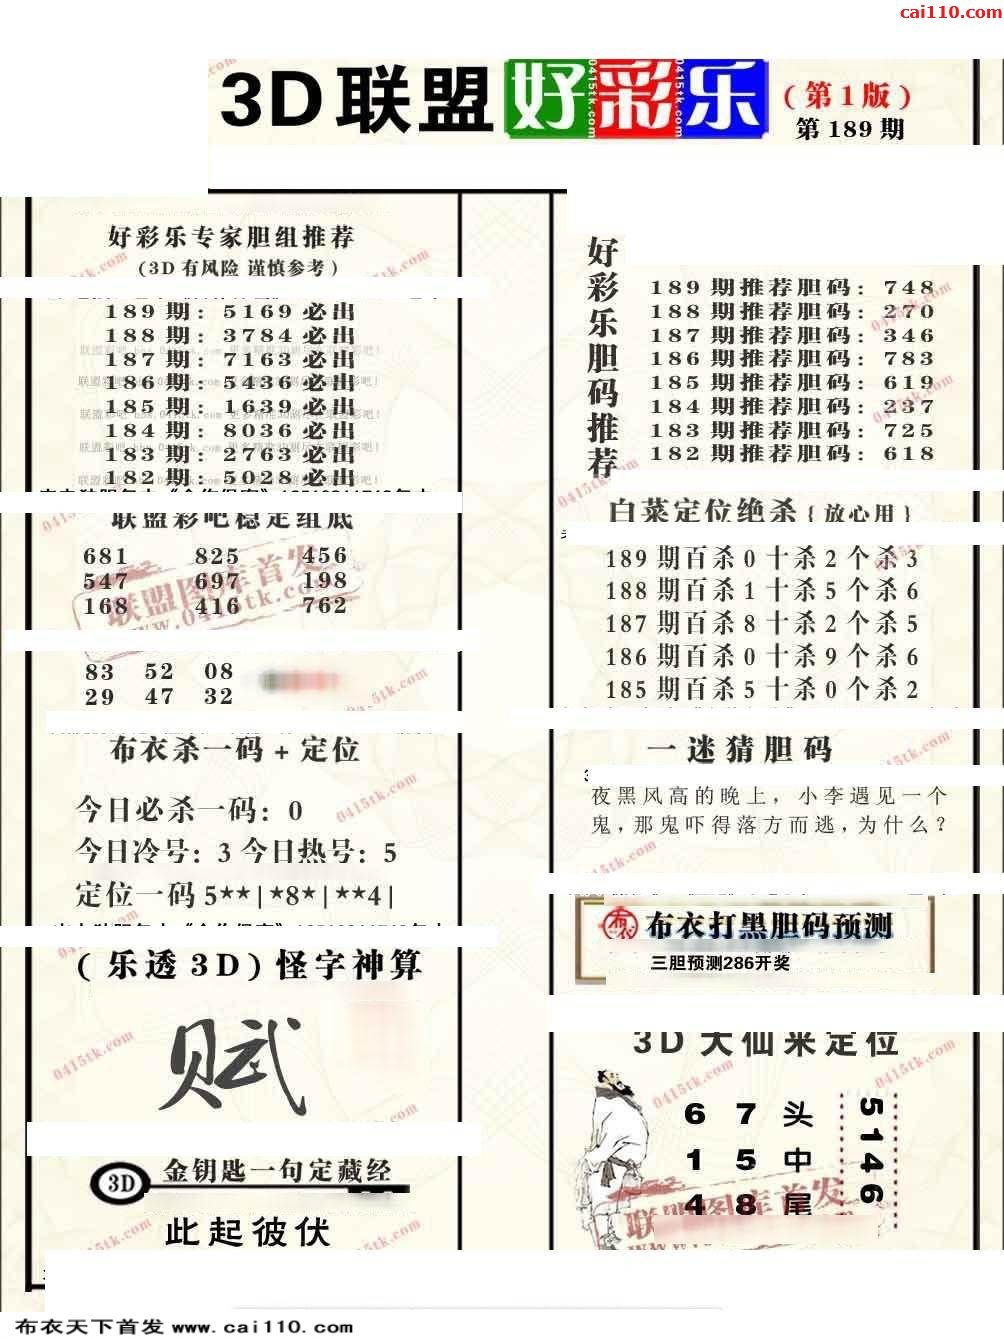 cai110.com
3D联盟 好彩乐 (第1版)
第189期
好彩乐专家胆组推荐
(3D有风险 谨慎参考)
189期: 5169必出
188期: 3784必出
187期: 7163必出
186期: 5436必出
185期: 1639必出
184期: 8036必出
183期: 2763必出
182期: 5028必出
联盟彩吧稳定组底
681 825 456
547 697 198
168 416 762
83 52 08
29 47 32
布衣杀一码+定位
今日必杀一码: 0
今日冷号: 3 今日热号: 5
定位一码5**|*8*|**4|
(乐透3D)怪字神算
赋
3D 金钥匙一句定藏经
此起彼伏
好彩乐胆码推荐
189期推荐胆码: 748
188期推荐胆码: 270
187期推荐胆码: 346
186期推荐胆码: 783
185期推荐胆码: 619
184期推荐胆码: 237
183期推荐胆码: 725
182期推荐胆码: 618
白菜定位绝杀{放心用}
189期百杀0十杀2个杀3
188期百杀1十杀5个杀6
187期百杀8十杀2个杀5
186期百杀0十杀9个杀6
185期百杀5十杀0个杀2
一迷猜胆码
夜黑风高的晚上，小李遇见一个
鬼，那鬼吓得落方而逃，为什么？
布衣 布衣打黑胆码预测
三胆预测286开奖
3D大仙来定位
6 7 头
1 5 中
4 8 尾
5146
联盟图库首发
www.0415tk.com
0415tk.com
布衣天下首发 www.cai110.com